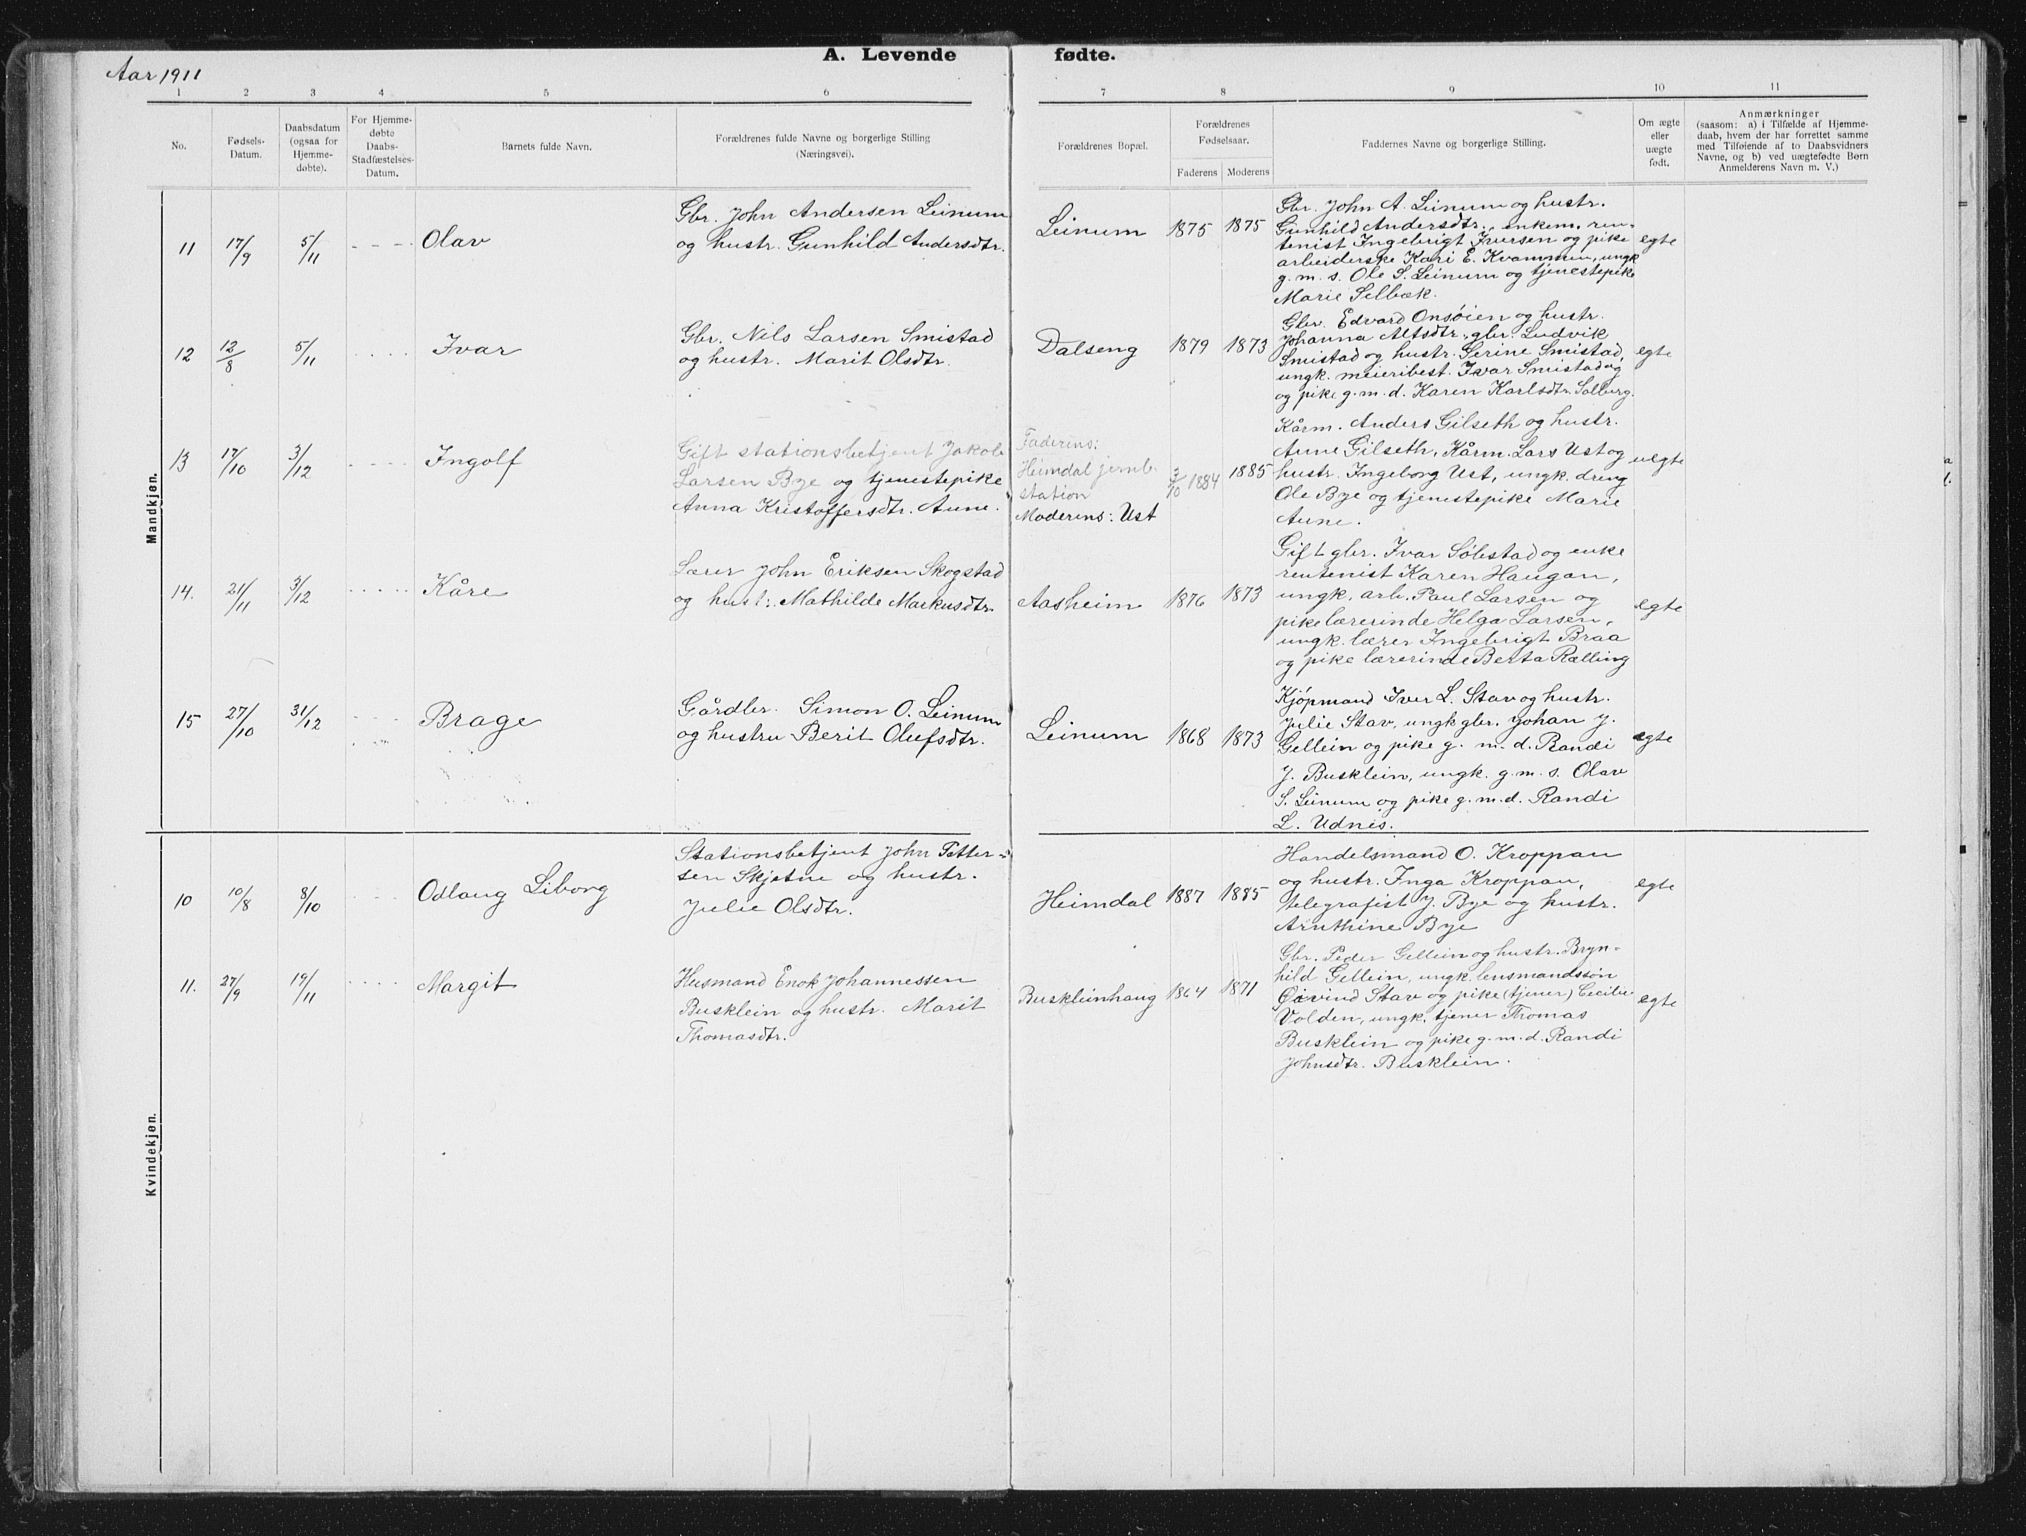 Aar 1911
A. Levende fødte.
1 2 3 4 5 6 7 8 9 10 11
No.
Fødsels-
Datum.
Daabsdatum
(ogsaa for
Hjemme-
døbte).
For Hjemme-
døbte
Daabs-
Stadfæstelses-
Datum.
Barnets fulde Navn.
Forældrenes fulde Navne og borgerlige Stilling
(Næringsvei).
Forældrenes Bopæl.
Forældrenes
Fødselsaar.
Faderens Moderens
Faddernes Navne og borgerlige Stilling.
Om ægte
eller
uægte
født.
Anmærkninger
(saasom: a) i Tilfælde af Hjemme-
daab, hvem der har forrettet samme
med Tilføiende af to Daabsvidners
Navne, og b) ved uægtefødte Børn
Anmelderens Navn m. V.)
Mandkjøn.
11 17/9 5/11 - - - - Olav
Gbr. John Andersen Leinum
og hustr. Gunhild Andersdtr.
Leinum 1875 1875
Gbr. John A. Leinum og hustr.
Gunhild Andersdtr., enkem. ren-
tenist Ingebrigt Iversen og pike
arbeiderske Kari E. Kvammen, ungk.
g. m. s. Ole S. Leinum og tjenestepike
Marie Selbæk.
egte
12 12/8 5/11 - - - - Ivar
Gbr. Nils Larsen Smistad
og hustr. Marit Olsdtr.
Dalseng 1879 1873
Gbr. Edvard Onsøien og hustr.
Johanna Altsdtr., gbr. Ludvik
Smistad og hustr. Serine Smistad,
ungk. meieribest. Ivar Smistad og
og pike g. m. d. Karen Karlsdtr. Solberg.
egte
13 17/10 3/12 - - - - Ingolf
Gift stationsbetjent Jakob
Larsen Bye og tjenestepike
Anna Kristoffersdtr. Aune.
Faderens:
Heimdal jernb.
station
Moderens: Ust
3/10 1884 1885
Kårm. Anders Gilseth og hustr.
Anne Gilseth, Kårm. Lars Ust og
hustr. Ingeborg Ust, ungk. dreng
Ole Bye og tjenestepike Marie
Aune.
uegte
14. 21/11 3/12 - - - - - Kåre
Lærer John Eriksen Skogstad
og hust: Mathilde Markusdtr.
Aasheim 1876 1873
Gift gbr. Ivar Søbstad og enke
rentenist Karen Haugan,
ungk. arb. Paul Larsen og
pike lærerinde Helga Larsen,
ungk. lærer Ingebrigt Braa
og pike lærerinde Berta Rælling
egte
15 27/10 31/12 - - - Brage
Gårdbr. Simon O. Leinum
og hustru Berit Olufsdtr.
Leinum 1868 1873
Kjøpmand Iver L. Stav og hustr.
Julie Stav, ungk gbr. Johan J.
Gellein og pike g. m. d. Randi
J. Busklein, ungk. g. m. s. Olav
S. Leinum og pike g. m. d. Randi
L. Udnes.
egte
Kvindekjøn.
10 10/8 8/10 - - - - Odlaug Liborg
Stationsbetjent John Petter-
sen Skjetne og hustr.
Julie Olsdtr.
Heimdal 1887 1885
Handelsmand O. Kroppan
og hustr. Inga Kroppan,
telegrafist J. Bye og hustr.
Arnthine Bye
egte
11. 27/9 19/11 - - - - Margit
Husmand Enok Johannessen
Busklein og hustr. Marit
Thomasdtr.
Buskleinhaug 1864 1871
Gbr. Peder Gellein og hustr. Bryn-
hild Gellein, ungk. lensmandssøn
Øivind Stav og pike (tjener) Cecilie
Volden, ungk. tjener Thomas
Busklein og pike g. m. d. Randi
Johnsdtr. Busklein.
egte